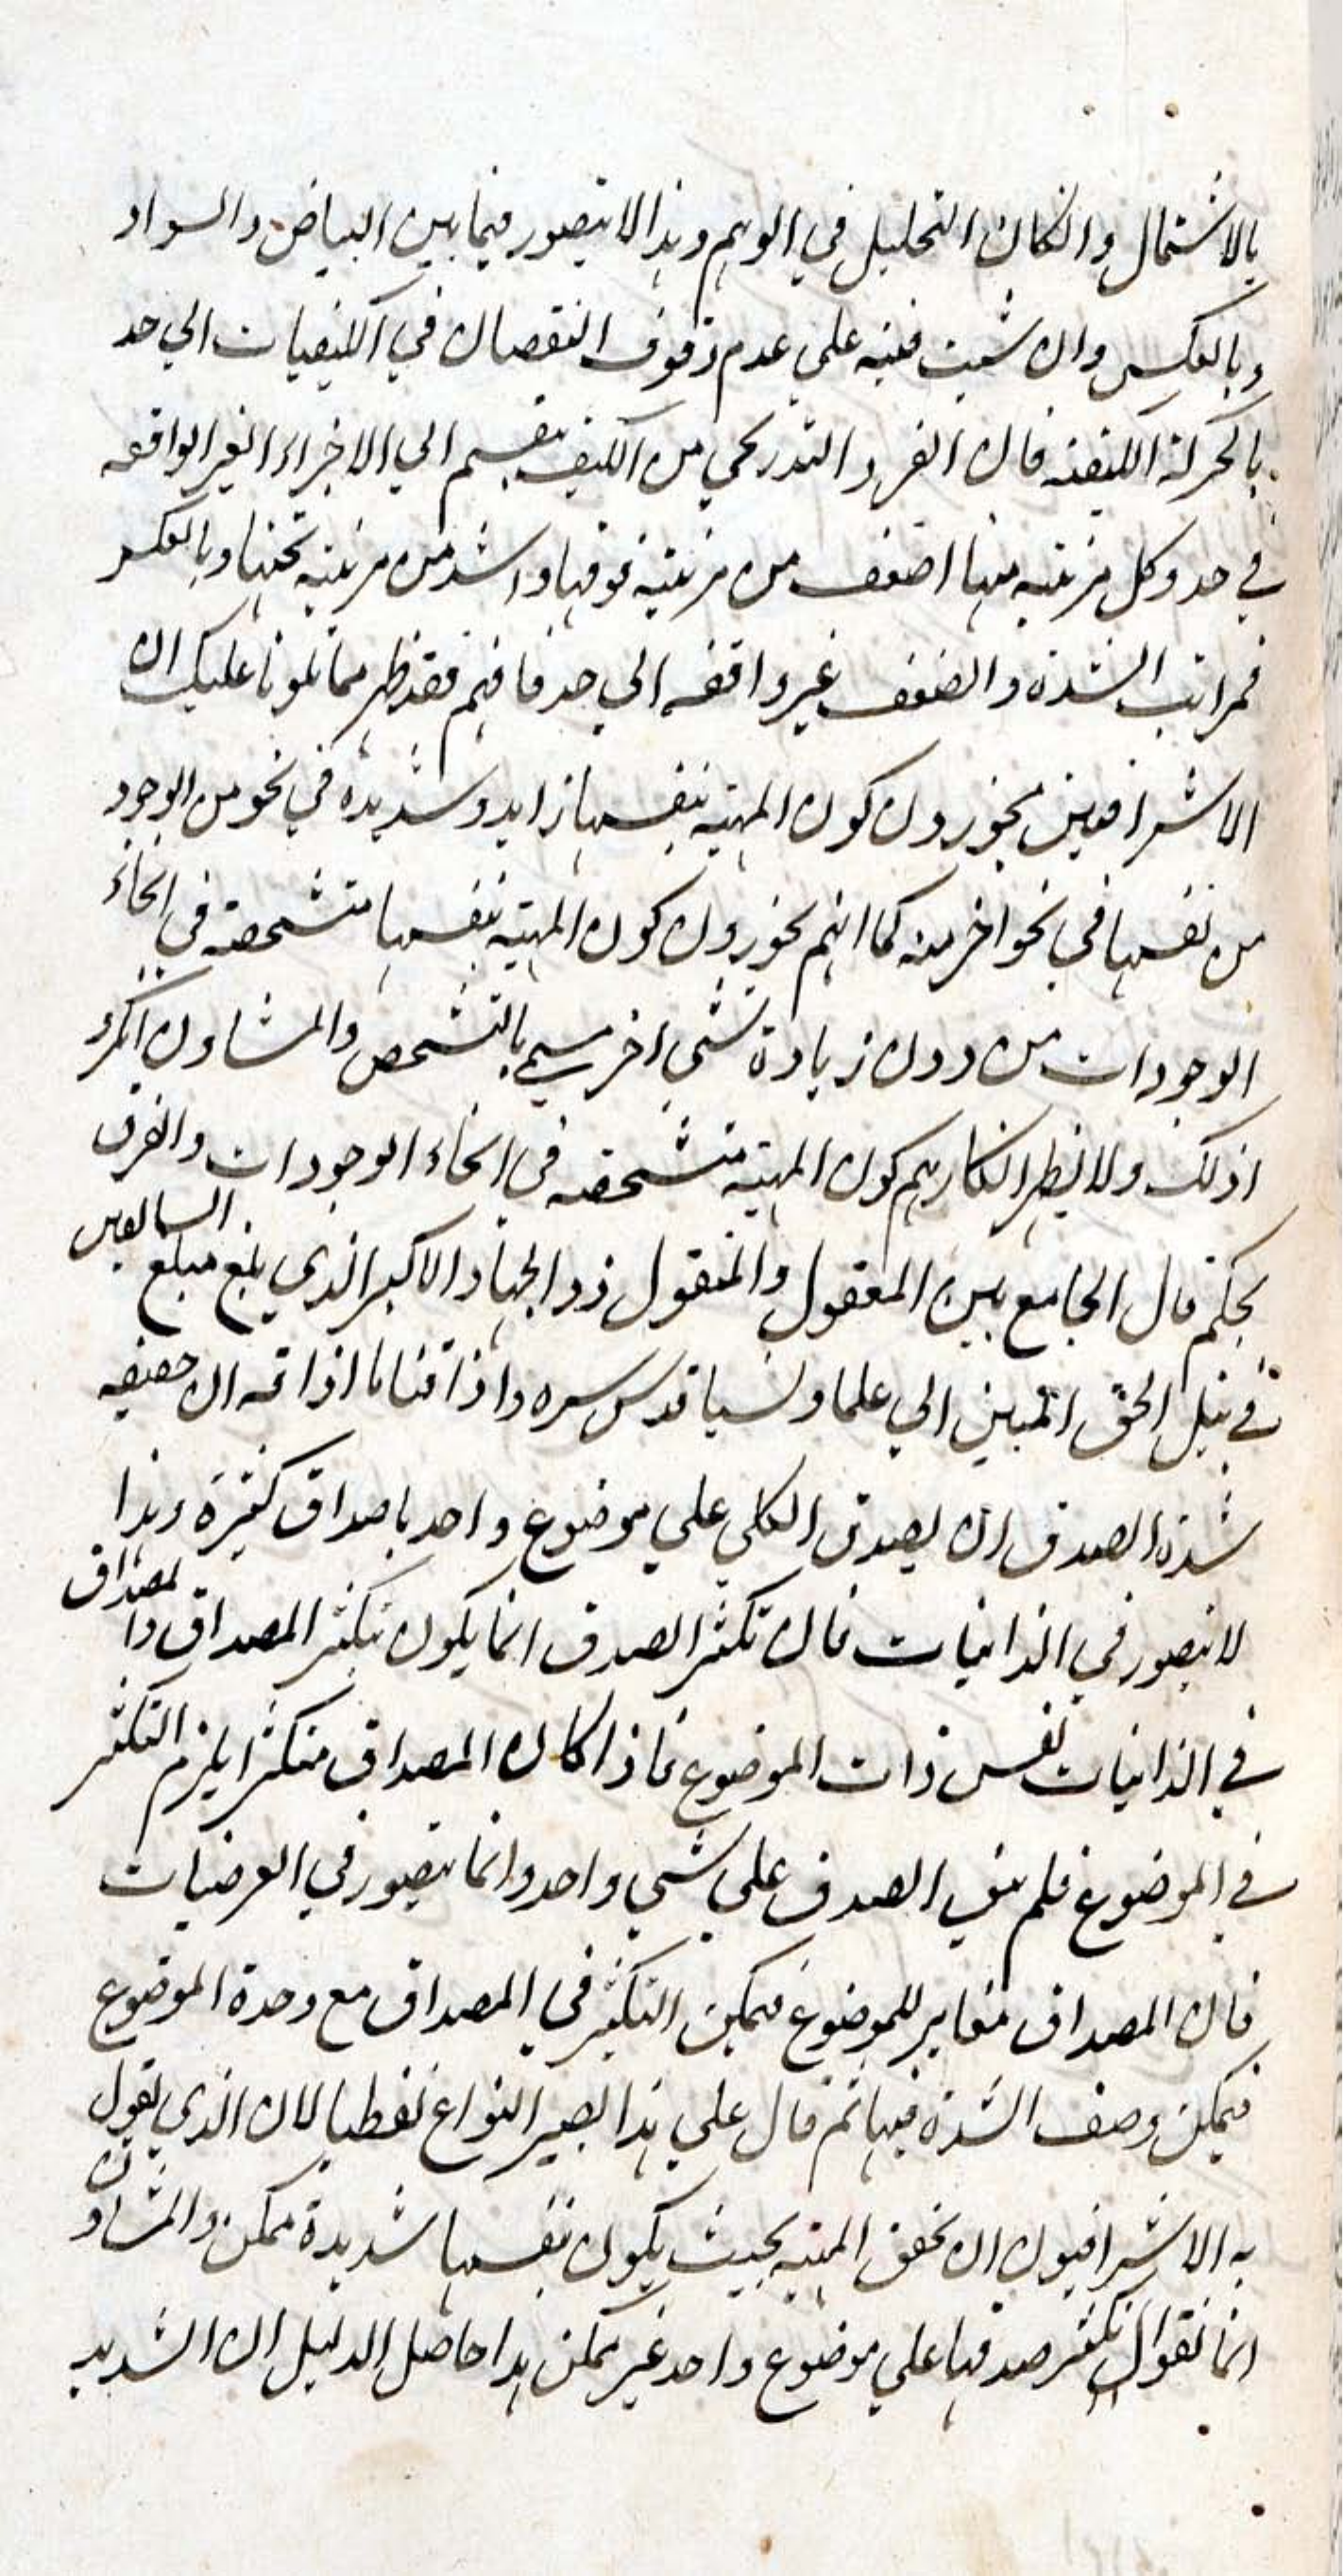 بالاشتمال وانكان التحليل في الوهم وهذا لا يتصور فيما بين البياض والسواد
وبالعكس وان شئت فنبه على عدم وقوف النقصان في الكيفيات الى حد
بالحركة الكيفية فان الفرد التدريجي من الكيف ينقسم الي الاجزاء الغير الواقفه
في حد وكل مرتبه منها اضعف من مرتبته فوقها واشد من مرتبته تحتها وبالعكس
فمراتب الشدة والضعف غير واقفه الي حد فافهم فقد ظهر مما تلونا عليك ان
الاشراقيين يجوزون كون المهية بنفسها زايد وشديدة في نحو من الوجود
من نفسها في نحو اخر منه كما انهم يجوزون كون المهية بنفسها متشخصة في انحاء
الوجودات من دون زيادة شي اخر يسمى بالتشخص والمشاون انكروا
ذلك ولا يظهر انكارهم كون المهية متشخصه في انحاء الوجودات والفرق
بحكم قال الجامع بين المعقول والمنقول ذو الجهاد الاكبر الذي بلغ مبلغ السابقين
في نيل الحق المبين ابي علما ونسبا قدس سره واذاقنا ما اذاقه ان حقيقه
شدة الصدق ان يصدق الكلي علي موضوع واحد باصداق كثيرة وهذا
لا يتصور في الذاتيات فان تكثر الصدق انما يكون بتكثر المصداق والمصداق
في الذاتيات نفس ذات الموضوع فاذا كان المصداق متكثرا يلزم التكثر
في الموضوع فلم يبق الصدق علي شي واحد وانما يتصور في العرضيات
فان المصداق مغاير للموضوع فيمكن التكثر في المصداق مع وحدة الموضوع
فيمكن وصف الشدة فيها ثم قال علي هذا يصير النزاع لفظيا لان الذي يقول
به الاشراقيون ان تحقق المهية بحيث يكون بنفسها شديدة ممكن والمشاون
انما يقول ان تكثر صدقها علي موضوع واحد غير ممكن هذا حاصل الدليل ان الشديد